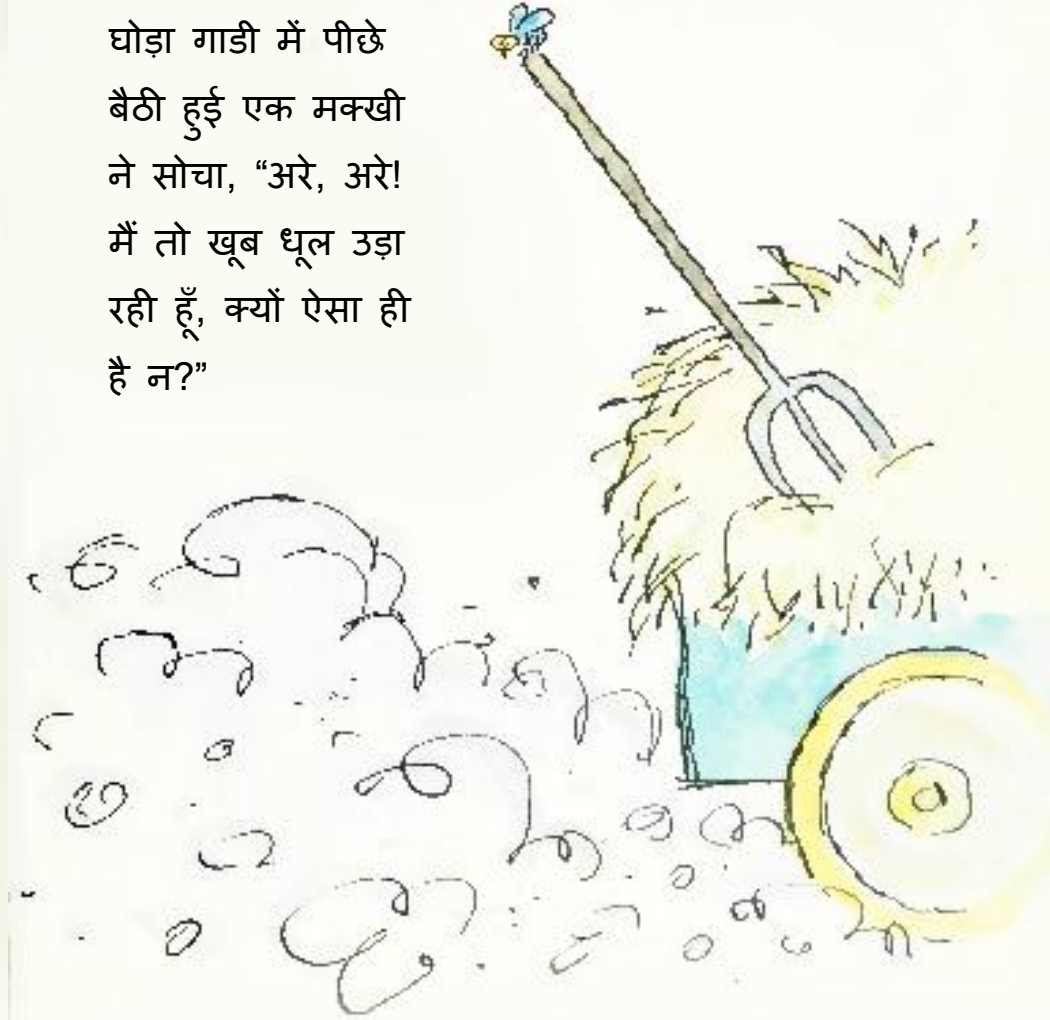 घोड़ा गाडी में पीछे
बैठी हुई एक मक्खी
ने सोचा, “अरे, अरे!
मैं तो खूब धूल उड़ा
रही हूँ, क्यों ऐसा ही
है न?”